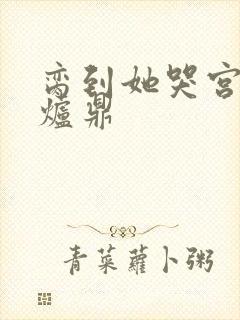 脔到她哭宫
爐鼎
青菜蘿卜粥